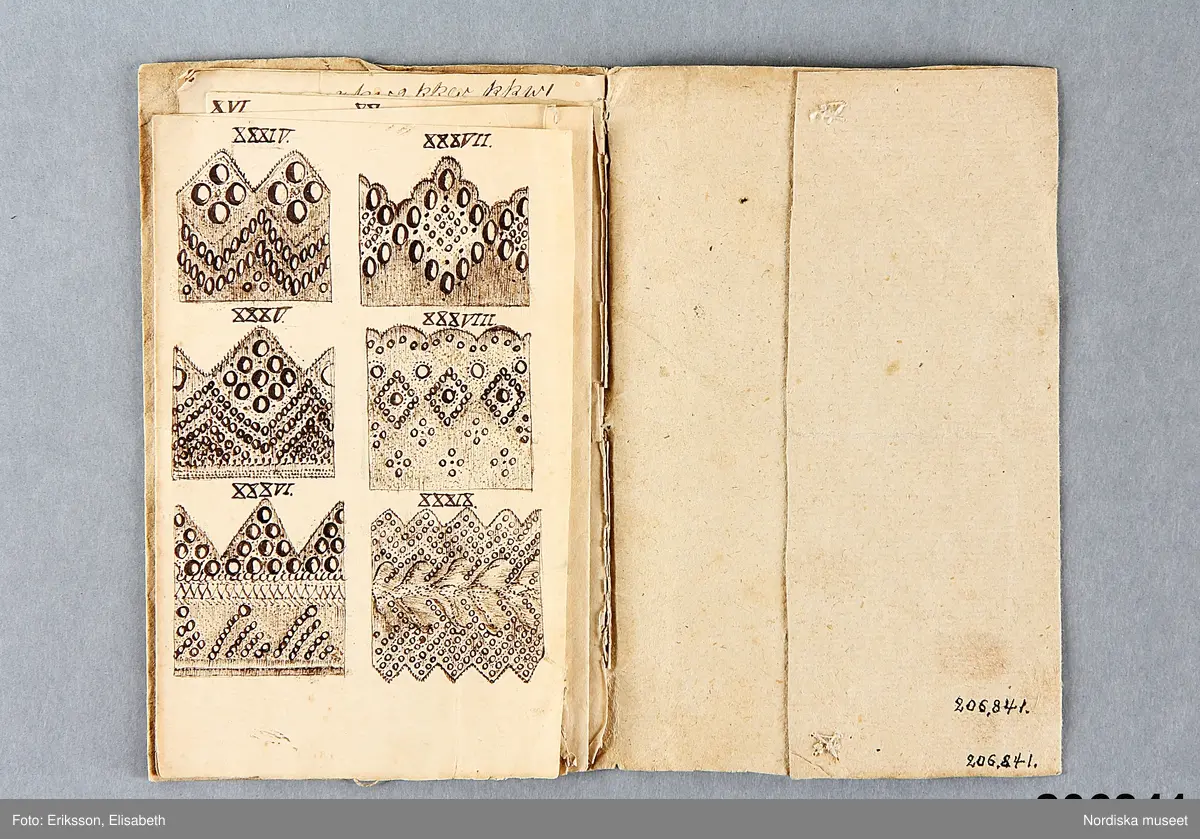 XVI.
XXXIV.
XXXVII.
XXXV.
XXXVIII.
XXXVI.
XXXIX
206,841.
206,841.
Foto: Eriksson, Elisabeth
Nordiska museet